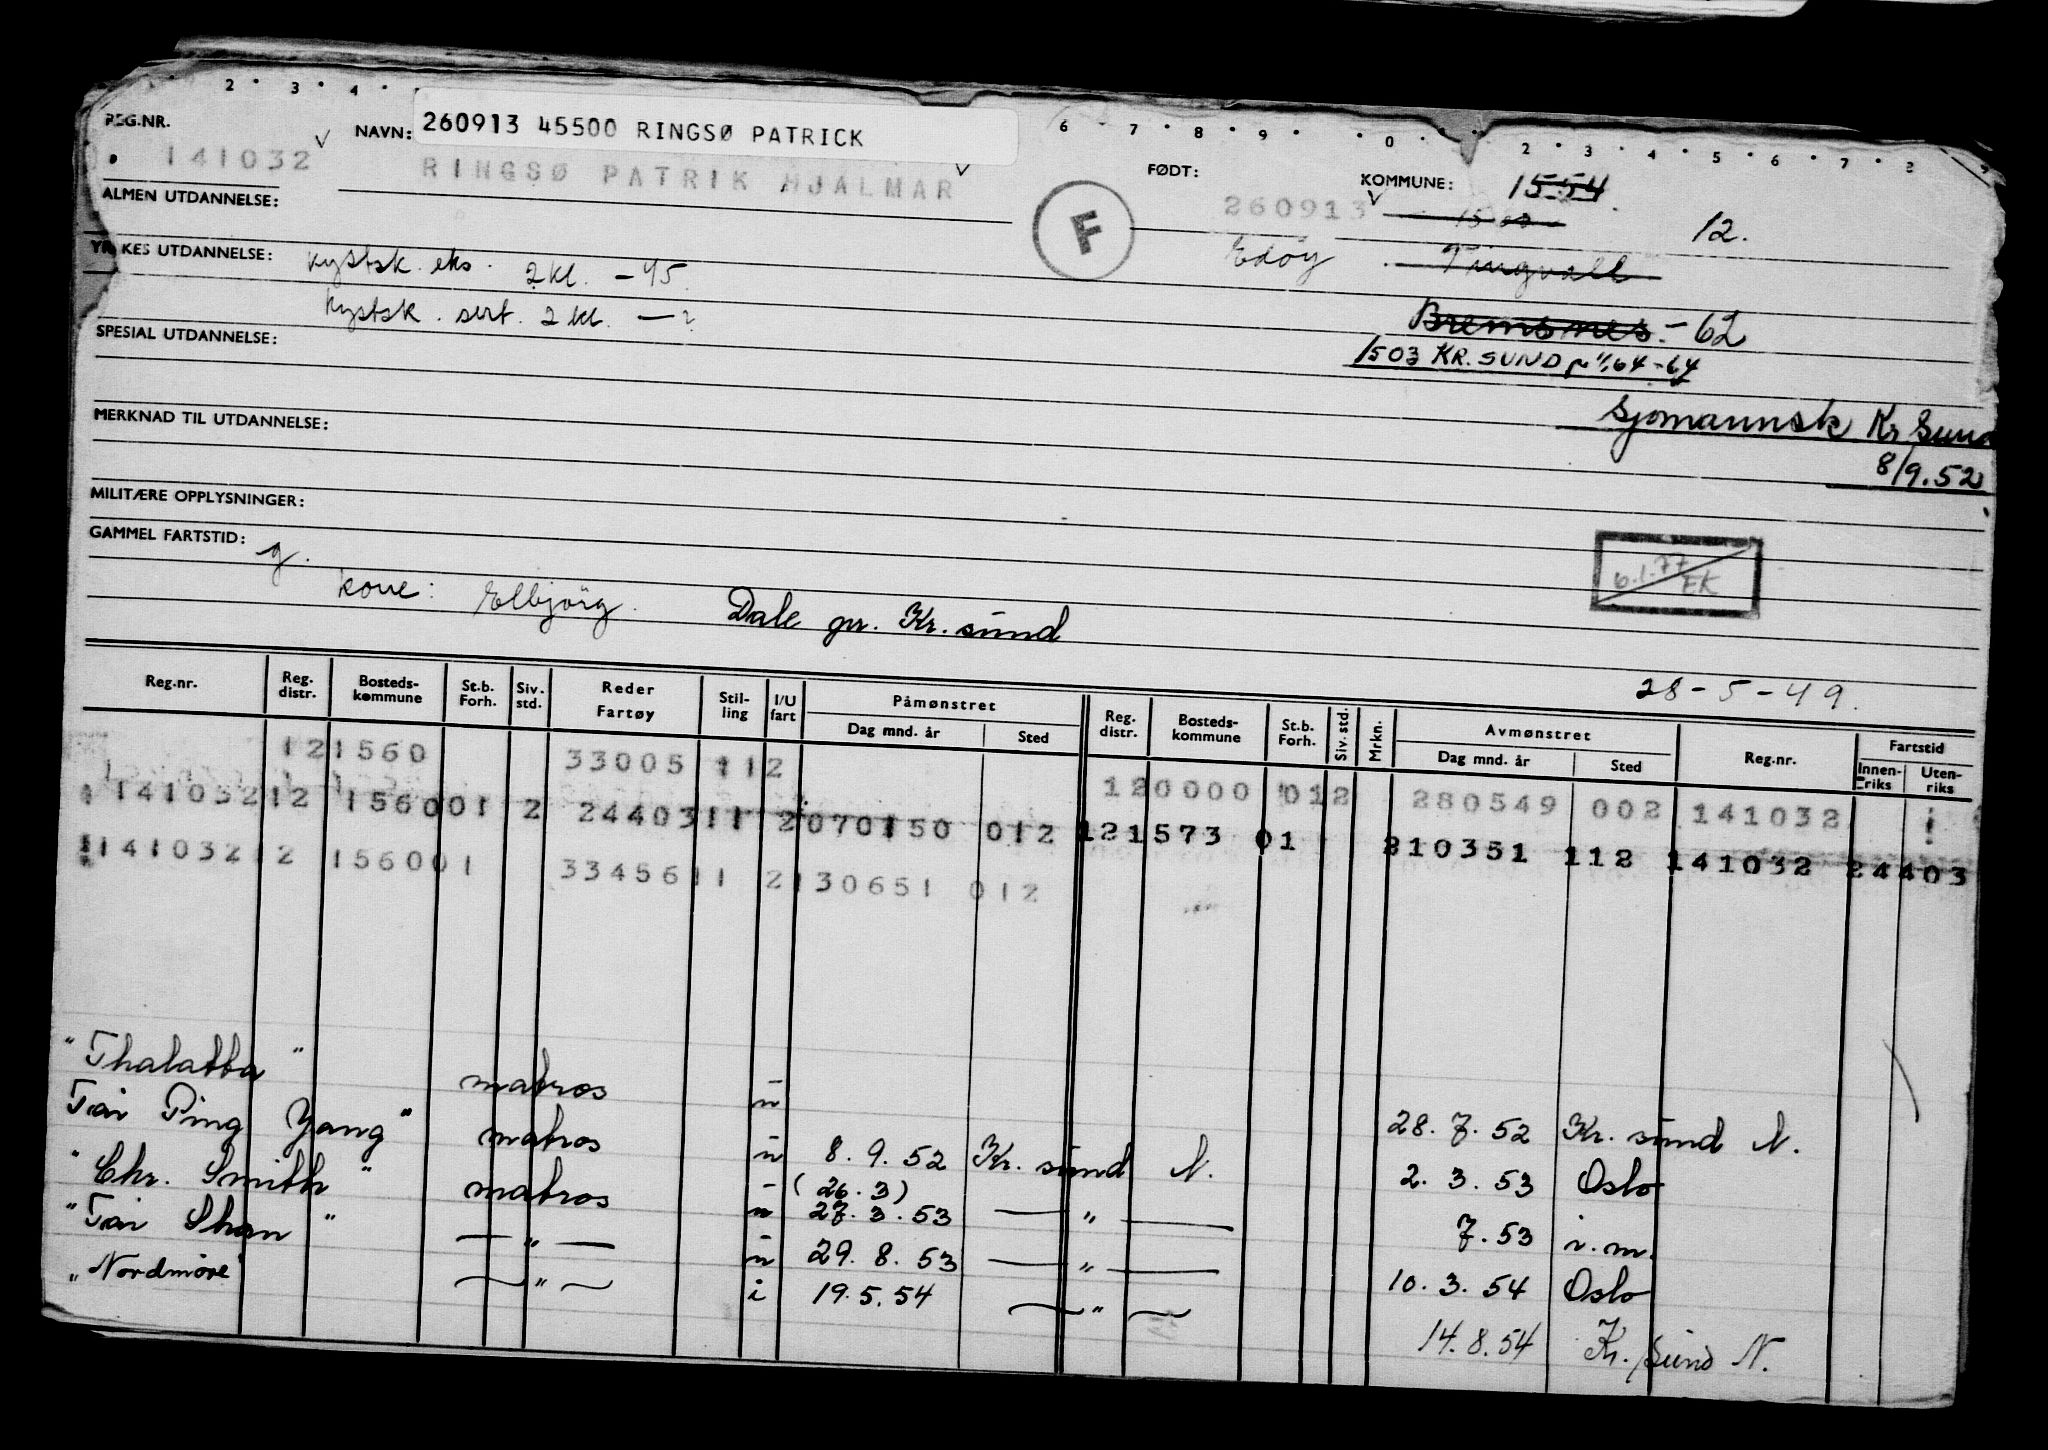 2 3 4 6 7 8 9 0 2 3 4 5 6 7 8
REG.NR. NAVN: 260913 45500 RINGSØ PATRICK
141032 RINGSØ PATRIK HJALMAR
FØDT: 260913
KOMMUNE: 1554
12.
F
ALMEN UTDANNELSE:
Edöy Tingvoll
YRKES UTDANNELSE: Kystsk. eks. 2 kl. - 45.
Kystsk. sert. 2 kl. — ?
Bremsnes - 62
1503 KR. SUND pr 1/1 64 - 64
SPESIAL UTDANNELSE:
Sjømannsk Kr Sund
8/9.52
MERKNAD TIL UTDANNELSE:
MILITÆRE OPPLYSNINGER:
GAMMEL FARTSTID: g.
6.1.77 EK
kone: Elbjörg. Dale pr. Kr. sund
28-5-49.
Reg.nr. Reg. distr. Bosteds-kommune St.b. Forh. Siv. std. Reder Fartøy Stil-ling I/U fart Påmønstret Dag mnd. år Sted Reg. distr. Bosteds-kommune St.b. Forh. Siv. std. Mrkn. Avmønstret Dag mnd. år Sted Reg.nr. Fartstid Innen-riks Uten-riks
121560 33005 112 120000 012 280549 002 141032
141032 12 156001 2 24403 11 2 070150 012 121573 01 210351 112 141032 24403
141032 12 156001 33456 11 2 130651 012
"Thalatta" matros u 28. 7. 52 Kr. sund N.
Tai Ping Yang" matros u 8. 9. 52 Kr. sund N. 2. 3. 53 Oslo
"Chr. Smith" matros u (26.3) 27. 3. 53 — " — 7. 53 i.m.
"Tai Shan" — " — u 29. 8. 53 — " — 10. 3. 54 Oslo
"Nordmöre" — " — i 19. 5. 54 — " — 14. 8. 54 Kr. sund N.